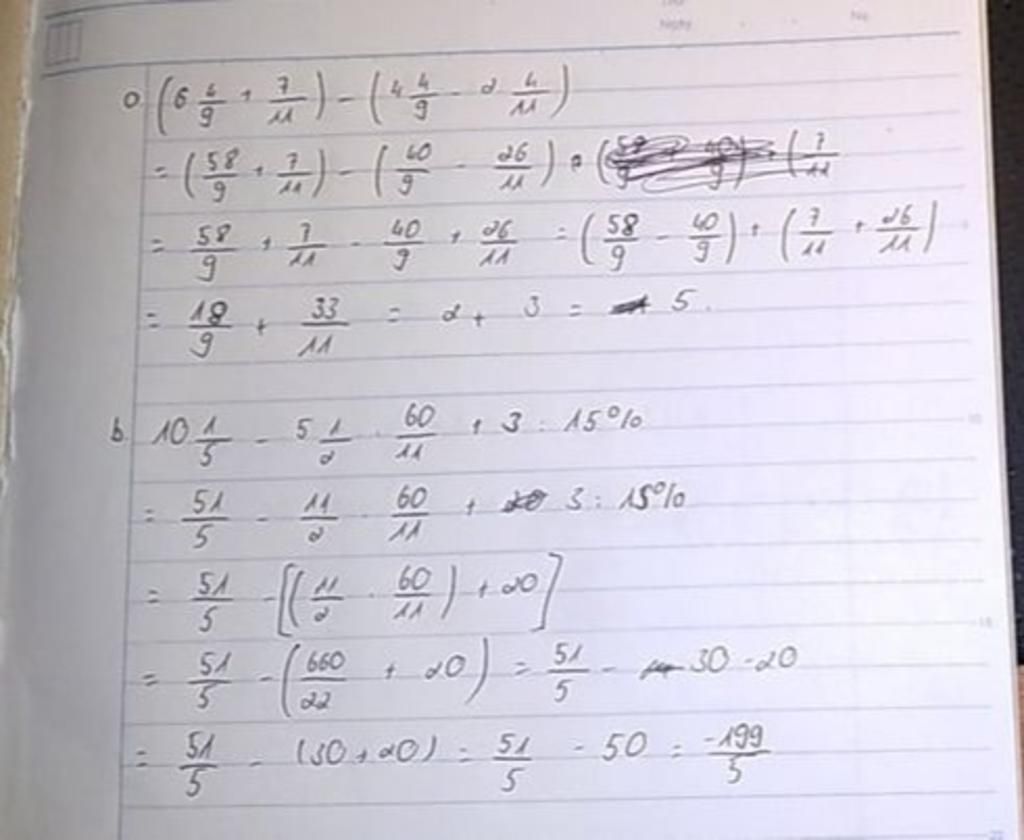 Ngày
No.
a. (6 4/9 + 7/11) - (4 4/9 - 2 4/11)
= (58/9 + 7/11) - (40/9 - 26/11) = (7/11
= 58/9 + 7/11 - 40/9 + 26/11 = (58/9 - 40/9) + (7/11 + 26/11)
= 18/9 + 33/11 = 2 + 3 = 5.
b. 10 1/5 - 5 1/2 . 60/11 + 3 : 15%
= 51/5 - 11/2 . 60/11 + 3 : 15%
= 51/5 - [(11/2 . 60/11) + 20]
= 51/5 - (660/22 + 20) = 51/5 - 30 - 20
= 51/5 - (30 + 20) = 51/5 - 50 = -199/5